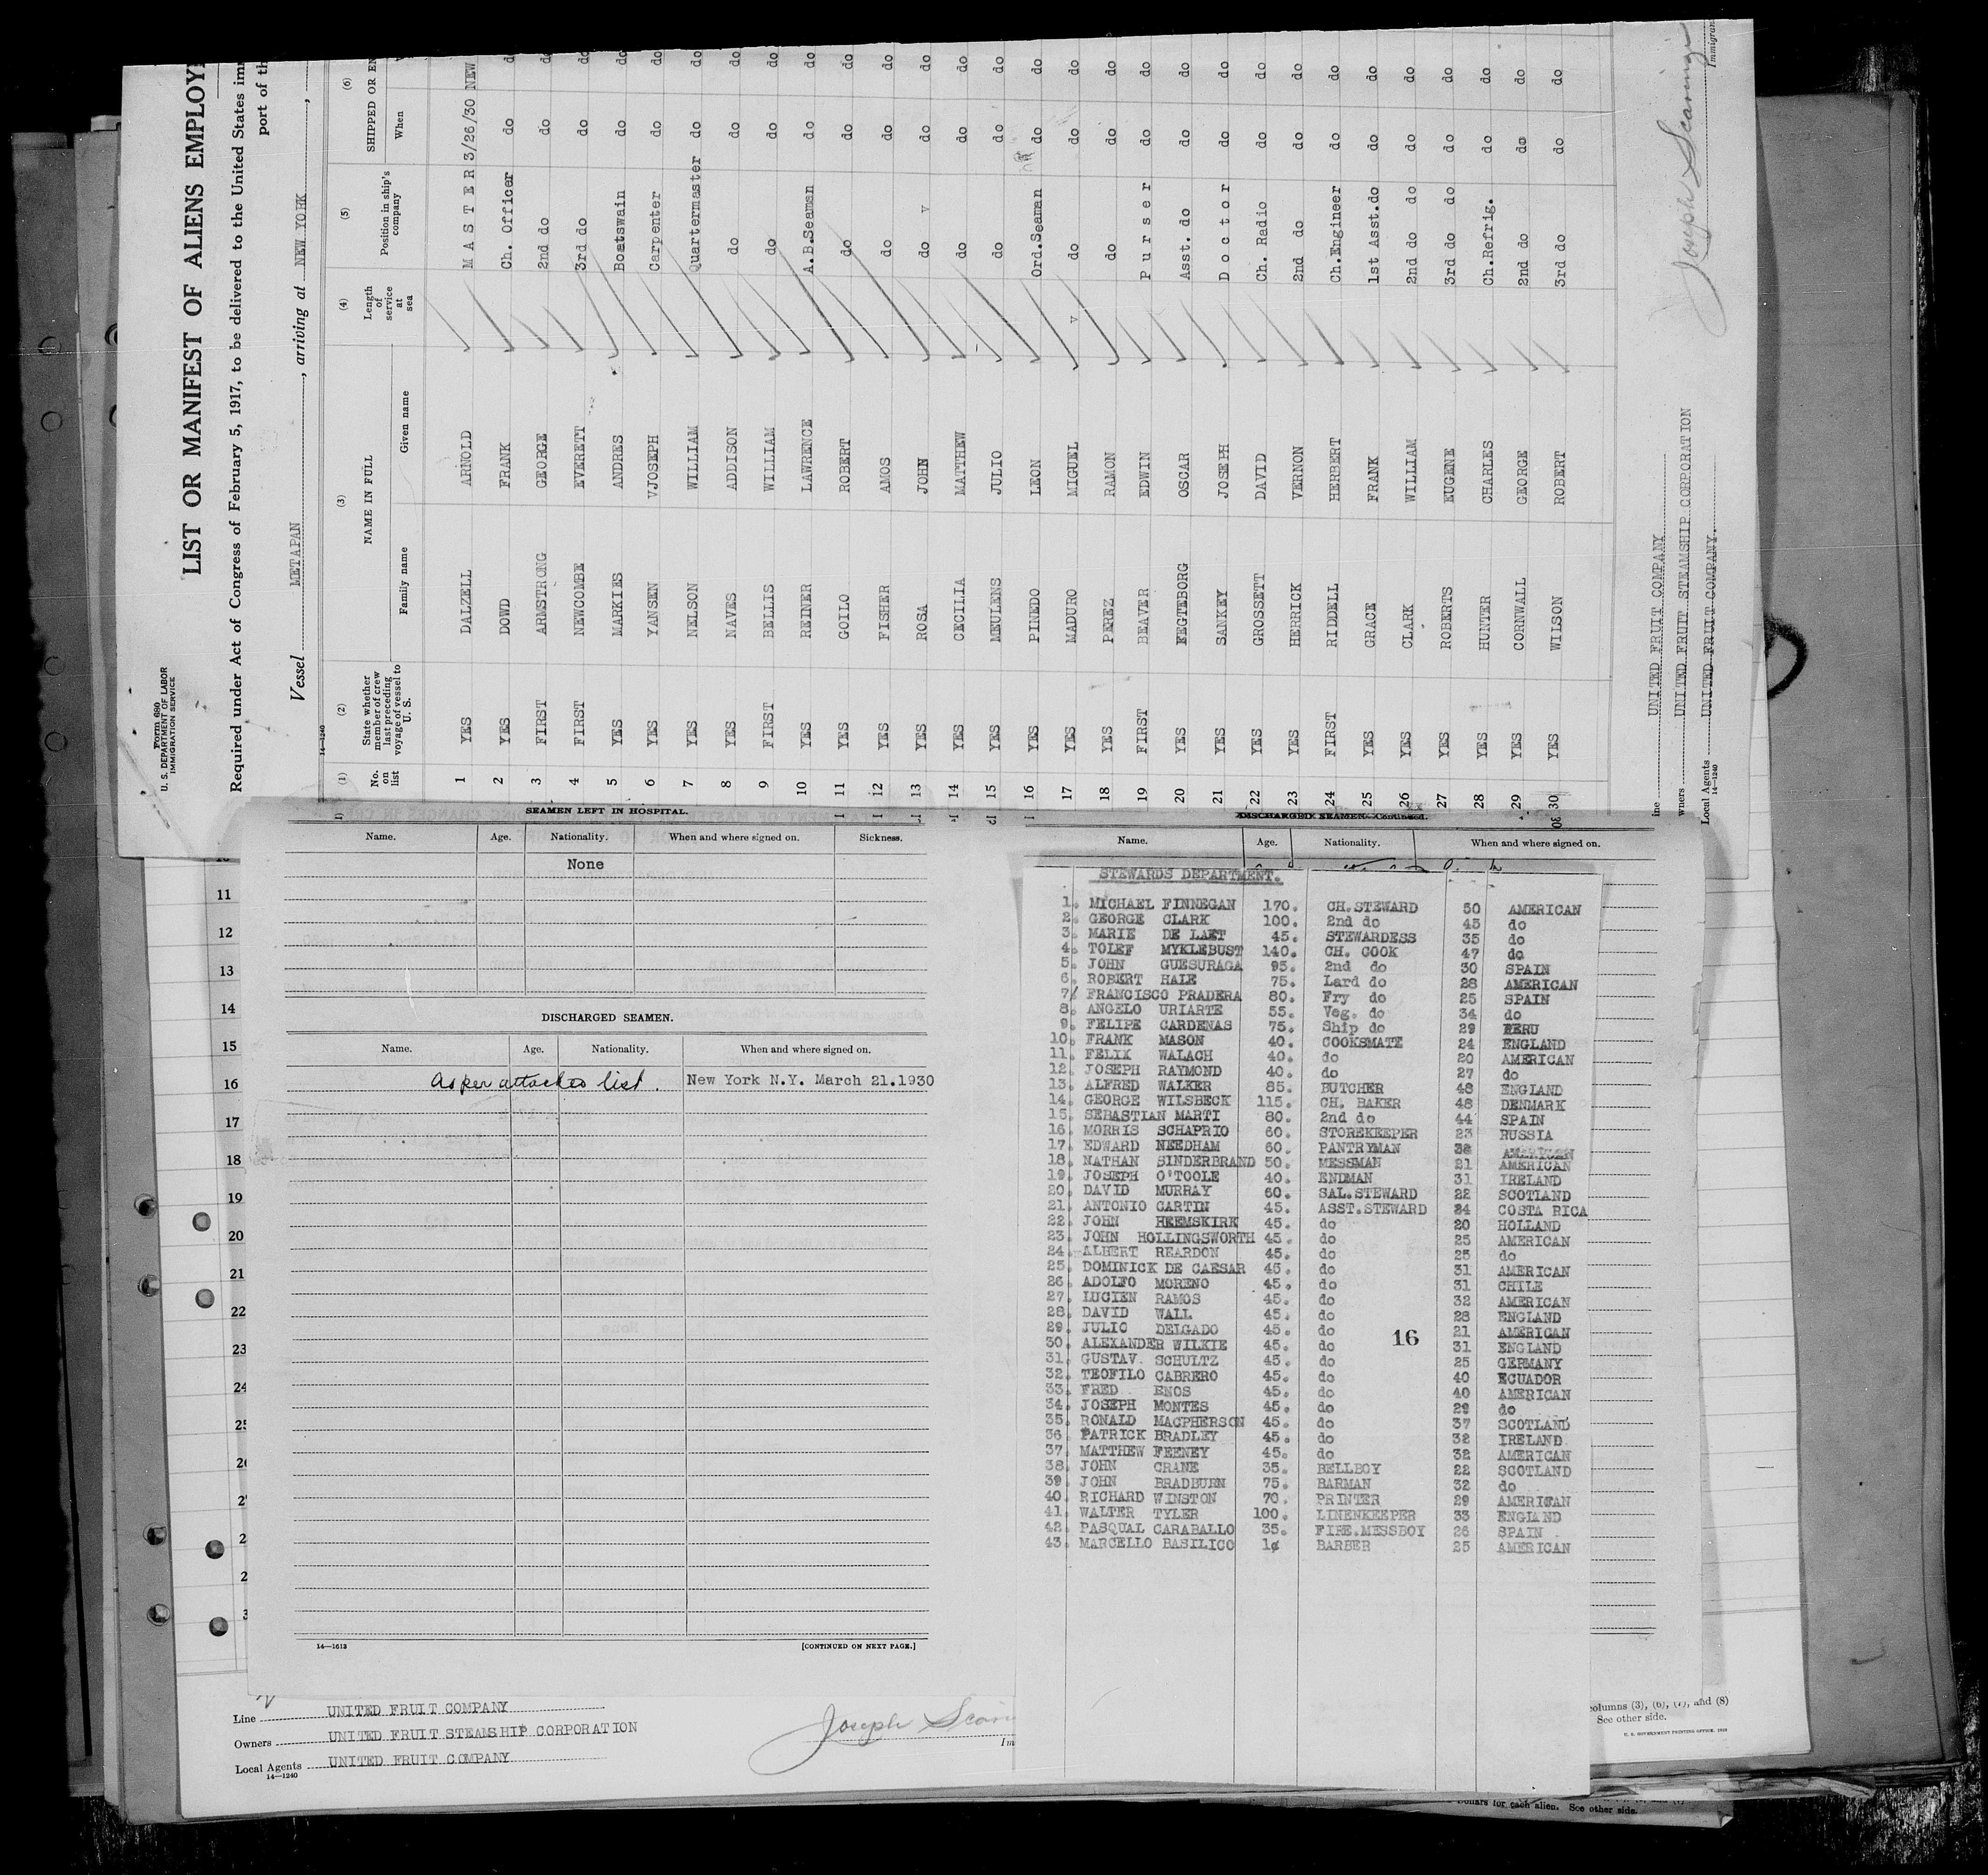 Form 680
U. S. DEPARTMENT OF LABOR
IMMIGRATION SERVICE
LIST OR MANIFEST OF ALIENS EMPLOY
Required under Act of Congress of February 5, 1917, to be delivered to the United States
port of
Vessel METAPAN, arriving at NEW YORK,
14—1240
(1) (2) (3) (4) (5) (6)
No. on list State whether member of crew last preceding voyage of vessel to U. S. NAME IN FULL Length of service at sea Position in ship's company SHIPPED OR
Family name Given name When
1 YES DALZELL ARNOLD MASTER 3/26/30 NEW
2 YES DOWD FRANK Ch. Officer do do
3 FIRST ARMSTRONG GEORGE 2nd do do do
4 FIRST NEWCOMBE EVERETT 3rd do do do
5 YES MARKIES ANDRES Boatswain do do
6 YES YANSEN VJOSEPH Carpenter do do
7 YES NELSON WILLIAM Quartermaster do do
8 YES NAVES ADDISON do do do
9 FIRST BELLIS WILLIAM do do do
10 YES REINER LAWRENCE A.B.Seaman do do
11 YES GOILO ROBERT do do do
12 YES FISHER AMOS do do do
13 YES ROSA JOHN do v do do
14 YES CECILIA MATTHEW do do do
15 YES MEULENS JULIO do do do
16 YES PINEDO LEON Ord.Seaman do do
17 YES MADURO MIGUEL v do do do
18 YES PEREZ RAMON do do do
19 FIRST BEAVER EDWIN Purser do do
20 YES FEGTEBORG OSCAR Asst. do do do
21 YES SANKEY JOSEPH Doctor do do
22 YES GROSSETT DAVID Ch. Radio do do
23 YES HERRICK VERNON 2nd do do do
24 FIRST RIDELL HERBERT Ch.Engineer do do
25 YES GRACE FRANK 1st Asst.do do do
26 YES CLARK WILLIAM 2nd do do do do
27 YES ROBERTS EUGENE 3rd do do do do
28 YES HUNTER CHARLES Ch.Refrig. do do
29 YES CORNWALL GEORGE 2nd do do do
30 YES WILSON ROBERT 3rd do do do
UNITED FRUIT COMPANY
UNITED FRUIT STEAMSHIP CORPORATION
Local Agents UNITED FRUIT COMPANY.
14—1240
Joseph
SEAMEN LEFT IN HOSPITAL.
Name. Age. Nationality. When and where signed on. Sickness.
None
DISCHARGED SEAMEN.
Name. Age. Nationality. When and where signed on.
As per attached list. New York N.Y. March 21.1930
14—1613 [CONTINUED ON NEXT PAGE.]
DISCHARGED SEAMEN—Continued.
Name. Age. Nationality. When and where signed on.
STEWARDS DEPARTMENT.
1. MICHAEL FINNEGAN 170. CH.STEWARD 50 AMERICAN
2. GEORGE CLARK 100. 2nd do 45 do
3. MARIE DE LAET 45. STEWARDESS 35 do
4. TOLEF MYKLEBUST 140. CH. COOK 47 do
5. JOHN GUESURAGA 95. 2nd do 30 SPAIN
6. ROBERT HALE 75. Lard do 28 AMERICAN
7. FRANCISCO PRADERA 80. Fry do 25 SPAIN
8. ANGELO URIARTE 55. Veg. do 34 do
9. FELIPE CARDENAS 75. Ship do 29 PERU
10. FRANK MASON 40. COOKSMATE 24 ENGLAND
11. FELIX WALACH 40. do 20 AMERICAN
12. JOSEPH RAYMOND 40. do 27 do
13. ALFRED WALKER 85. BUTCHER 48 ENGLAND
14. GEORGE WILSBECK 115. CH. BAKER 48 DENMARK
15. SEBASTIAN MARTI 80. 2nd do 44 SPAIN
16. MORRIS SCHAPRIO 60. STOREKEEPER 23 RUSSIA
17. EDWARD NEEDHAM 60. PANTRYMAN AMERICAN
18. NATHAN SINDERBRAND 50. MESSMAN 21 AMERICAN
19. JOSEPH O'TOOLE 40. ENDMAN 31 IRELAND
20. DAVID MURRAY 60. SAL.STEWARD 22 SCOTLAND
21. ANTONIO CARTIN 45. ASST.STEWARD 24 COSTA RICA
22. JOHN HEEMSKIRK 45. do 20 HOLLAND
23. JOHN HOLLINGSWORTH 45. do 25 AMERICAN
24. ALBERT REARDON 45. do 25 do
25. DOMINICK DE CAESAR 45. do 31 AMERICAN
26. ADOLFO MORENO 45. do 31 CHILE
27. LUCIEN RAMOS 45. do 32 AMERICAN
28. DAVID WALL 45. do 28 ENGLAND
29. JULIO DELGADO 45. do 21 AMERICAN
16
30. ALEXANDER WILKIE 45. do 31 ENGLAND
31. GUSTAV. SCHULTZ 45. do 25 GERMANY
32. TEOFILO CABRERO 45. do 40 ECUADOR
33. FRED ENOS 45. do 40 AMERICAN
34. JOSEPH MONTES 45. do 29 do
35. RONALD MACPHERSON 45. do 37 SCOTLAND
36. PATRICK BRADLEY 45. do 32 IRELAND
37. MATTHEW FEENEY 45. do 32 AMERICAN
38. JOHN CRANE 35. BELLBOY 22 SCOTLAND
39. JOHN BRADBURN 75. BARMAN 32 do
40. RICHARD WINSTON 70. PRINTER 29 AMERICAN
41. WALTER TYLER 100. LINENKEEPER 33 ENGLAND
42. PASQUAL CARABALLO 35. FIRE.MESSBOY 26 SPAIN
43. MARCELLO BASILICO 1¢ BARBER 25 AMERICAN
11
12
13
14
15
16
17
18
19
20
21
22
23
24
Line UNITED FRUIT COMPANY
Owners UNITED FRUIT STEAMSHIP CORPORATION
Local Agents UNITED FRUIT COMPANY
14—1240
Joseph
columns (3), (6), (7), and (8)
See other side.
U. S. GOVERNMENT PRINTING OFFICE
Dollars for each alien. See other side.